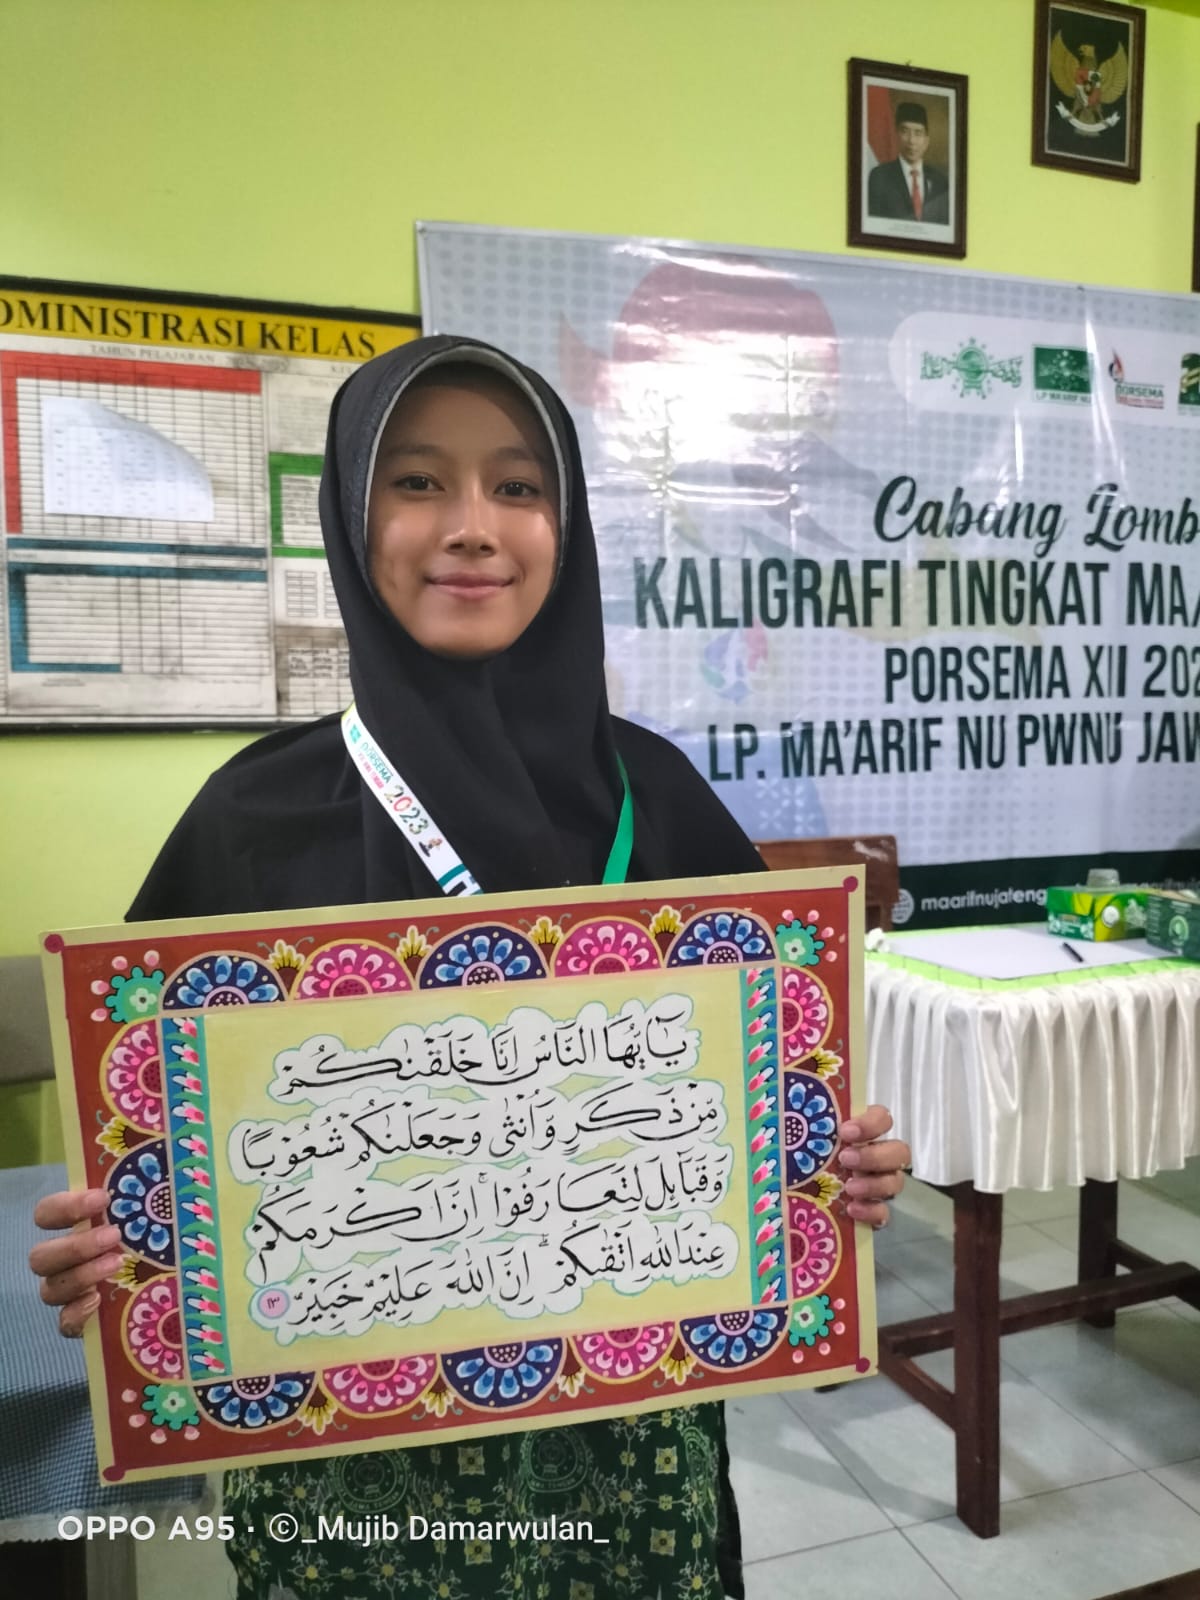 DMINISTRASI KELAS
TAHUN PELAJARAN
LP MA'ARIF NU
PORSEMA
Cabang Lomb
KALIGRAFI TINGKAT MA
PORSEMA XII 202
LP. MA'ARIF NU PWNU JAW
maarifnujateng
PORSEMA
2023
يٰٓاَيُّهَا النَّاسُ اِنَّا خَلَقْنٰكُمْ
مِّنْ ذَكَرٍ وَّاُنْثٰى وَجَعَلْنٰكُمْ شُعُوْبًا
وَّقَبَاۤىِٕلَ لِتَعَارَفُوْا ۚ اِنَّ اَكْرَمَكُمْ
عِنْدَ اللّٰهِ اَتْقٰىكُمْ ۗ اِنَّ اللّٰهَ عَلِيْمٌ خَبِيْرٌ ١٣
OPPO A95 · ©_Mujib Damarwulan_